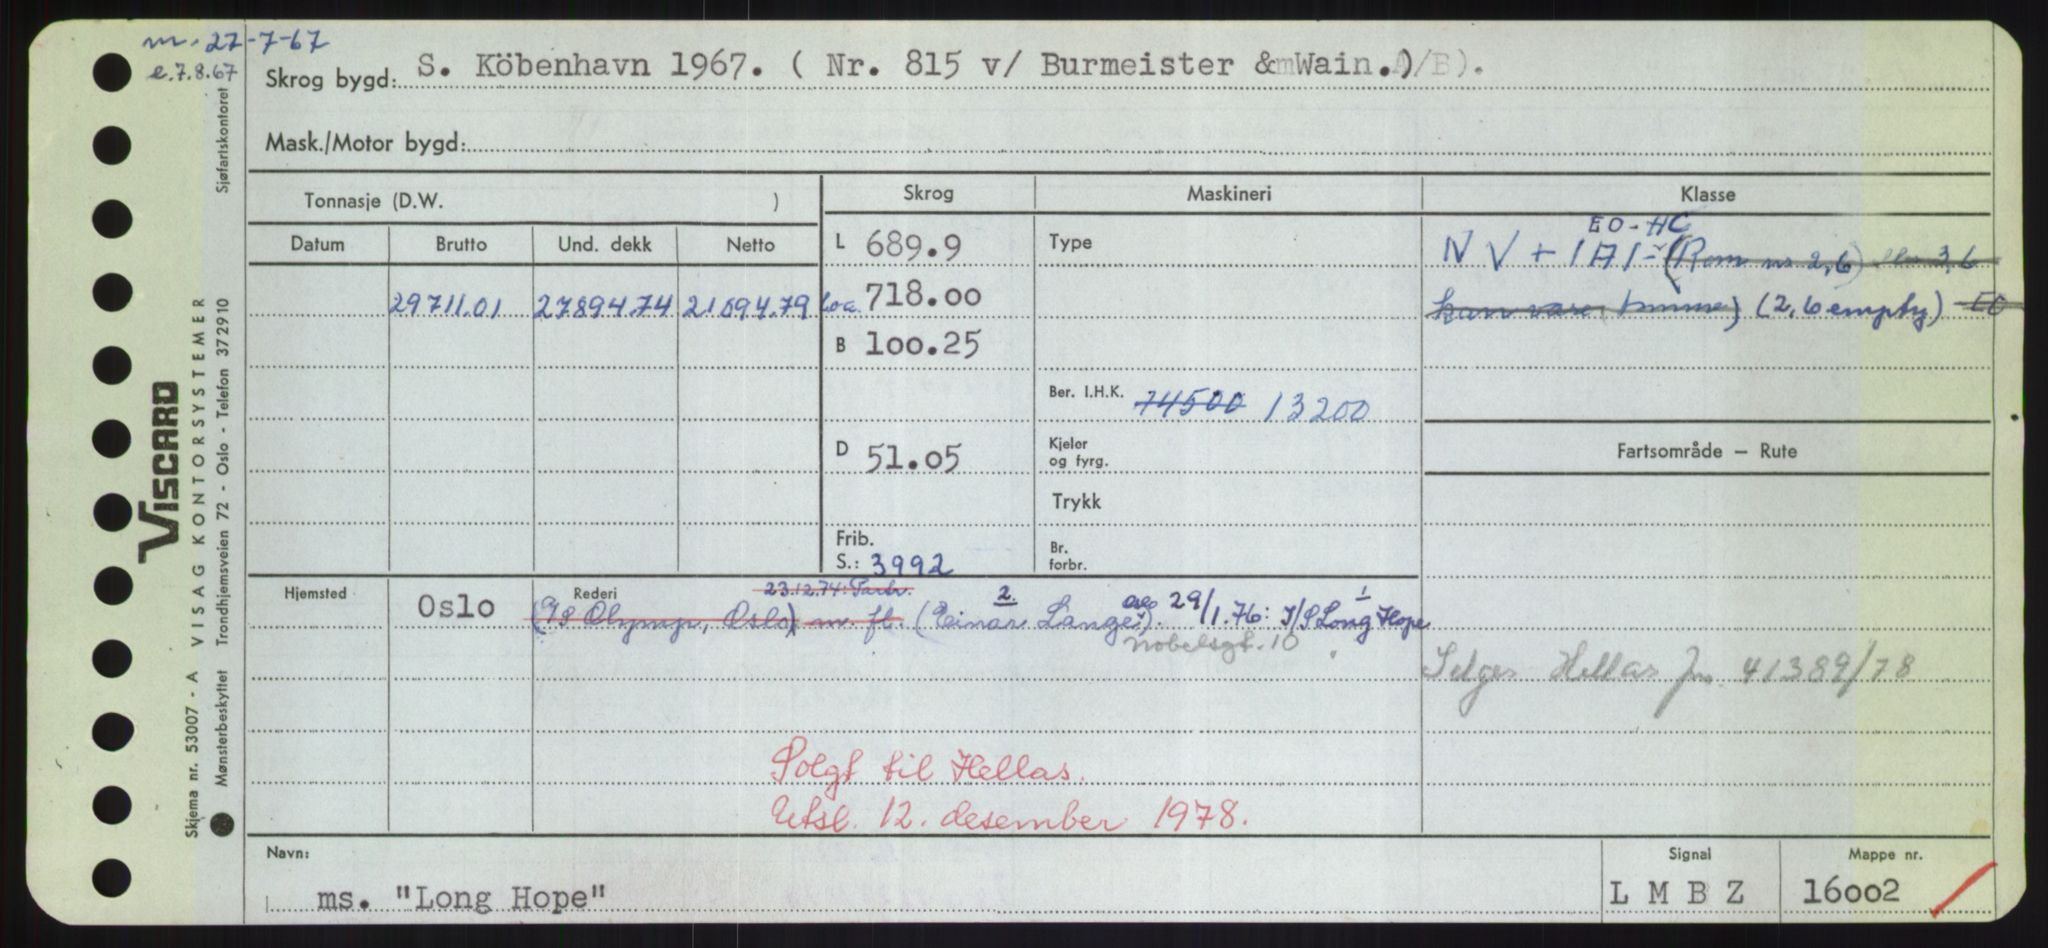 m. 27-7-67
e. 7.8.67
Skrog bygd: S. Köbenhavn 1967. ( Nr. 815 v/ Burmeister & Wain. A/B).
Mask./Motor bygd:
Tonnasje (D.W. )
Skrog Maskineri Klasse
Datum Brutto Und. dekk Netto
29711.01 27894.74 21094.79
L 689.9
loa. 718.oo
B loo.25
D 51.o5
Frib. S.: 3992
Type
Ber. I.H.K. 74500 13200
Kjeler og fyrg.
Trykk
Br. forbr.
EO-HC
NV + 1A1 - (Rom nr 2,6) 3,6
kan være tomme) (2,6 empty) EO
Fartsområde – Rute
Hjemsted Oslo
Rederi 23.12.74: Partr. 2. 1
(A/S Olymp, Oslo) m. fl. (Einar Lange). Oslo 29/1.76: I/S Long Hope
Nobelsgt. 10
Selges Hellas Jnr. 41389/78
Solgt til Hellas.
Utsl. 12. desember 1978.
Navn: ms. "Long Hope"
Signal L M B Z
Mappe nr. 16oo2
VISCARD
Skjema nr. 53007 - A VISAG KONTORSYSTEMER
Mønsterbeskyttet Trondhjemsveien 72 - Oslo - Telefon 372910 Sjøfartskontoret